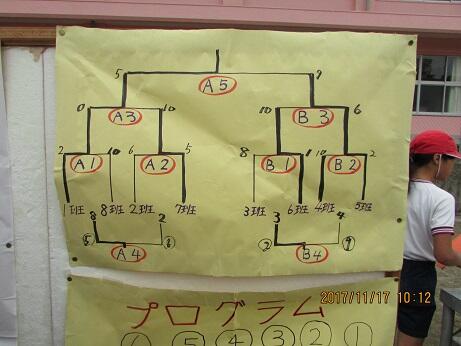 5 A5 7
0 A3 10 10 B3 6
2 A1 10 6 A2 5 8 B1 B2 2
1班 8班 2班 7班 3班 6班 4班 5班
8 2 3 4
⑤ A4 ⑥ ② B4
プログラム
⑤ ④ ③ ② ①
2017/11/17 10:12